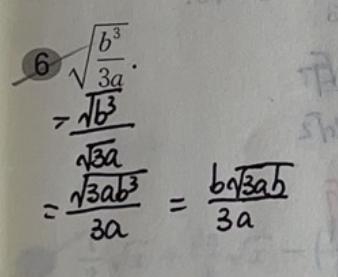 6 √(b³/3a).
= √b³/√3a
= √3ab³/3a = b√3ab/3a